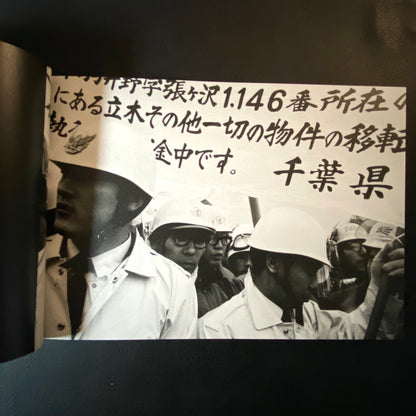 野字張ヶ沢1.146番所在の
にある立木その他一切の物件の移転
執
金中です。
千葉県